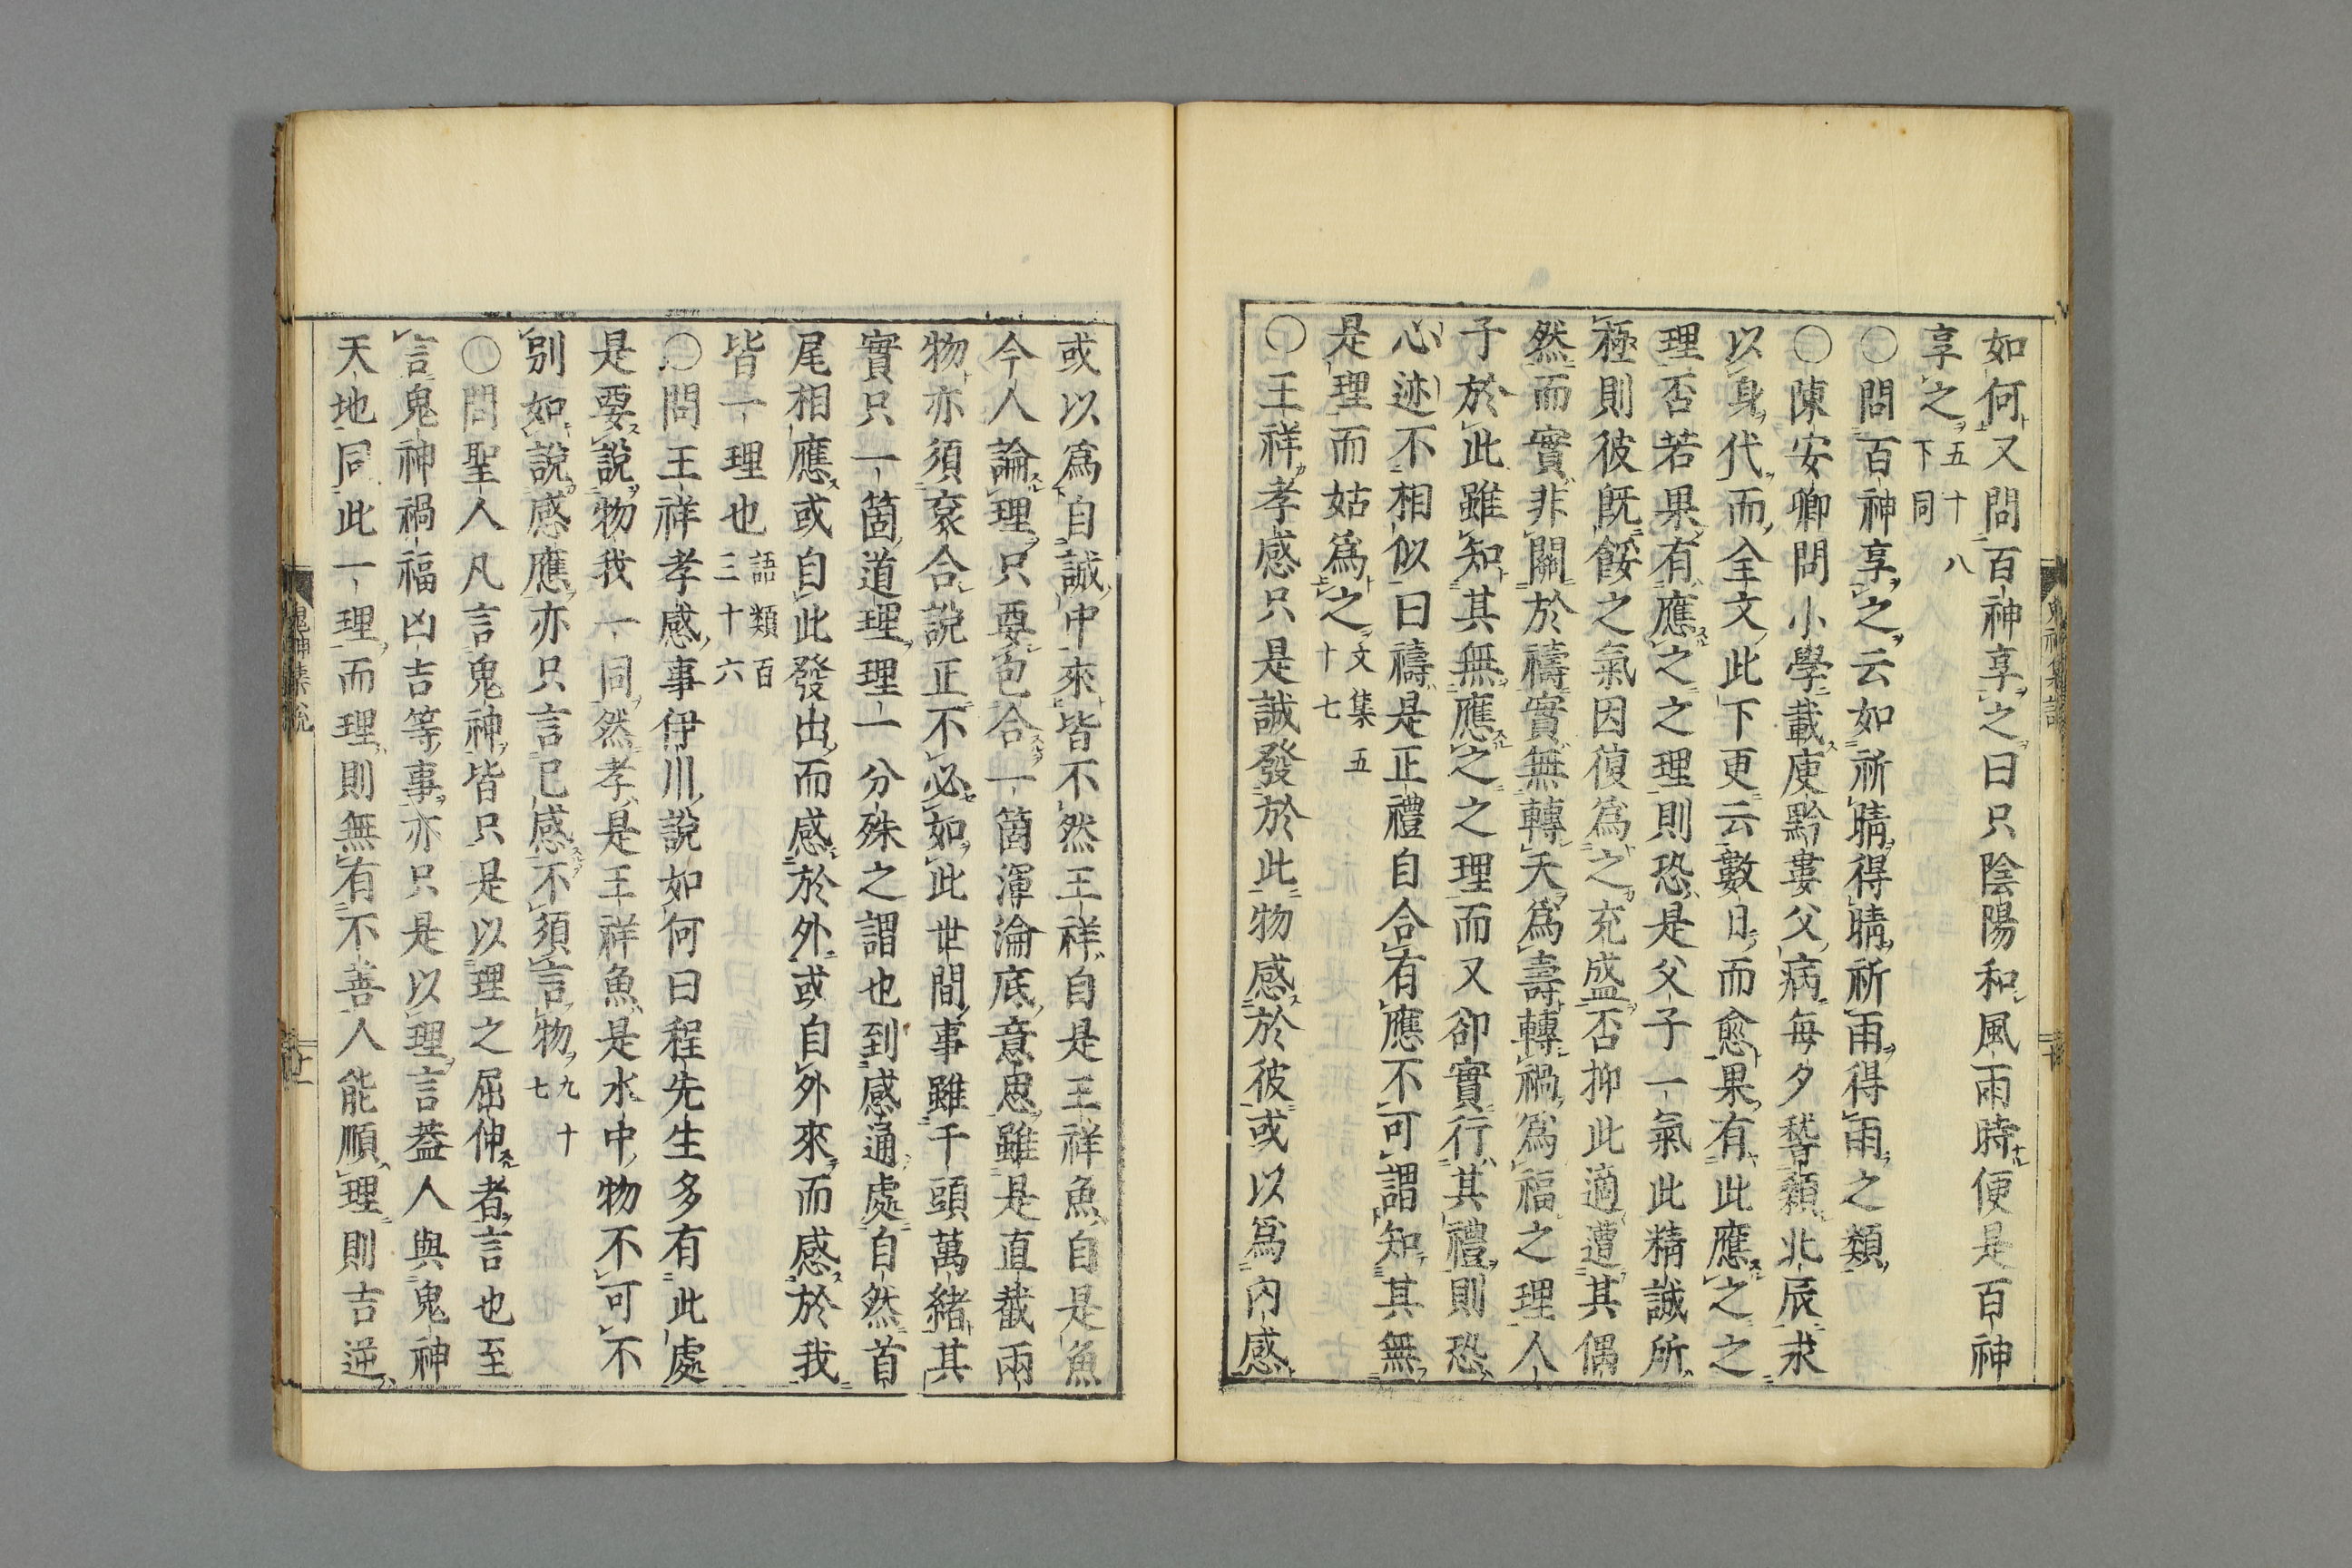 如何又問百神享之曰只陰陽和風雨時便是百神
享之五十八下同
〇問百神享之云如祈晴得晴祈雨得雨之類
〇陳安卿問小學載庾黔婁父病每夕稽顙北辰求
以身代而全文此下更云數日而愈果有此應之之
理否若果有應之之理則恐是父子一氣此精誠所
極則彼既餒之氣因復爲之充盛否抑此適遭其偶
然而實非關於禱實無轉夭爲壽轉禍爲福之理人
子於此雖知其無應之之理而又卻實行其禮則恐
心迹不相似曰禱是正禮自合有應不可謂知其無
是理而姑爲之文集五十七
〇王祥孝感只是誠發於此物感於彼或以爲內感
或以爲自誠中來皆不然王祥自是王祥魚自是魚
今人論理只要包合一箇渾淪底意思雖是直截兩
物亦須袞合說正不必如此世間事雖千頭萬緒其
實只一箇道理理一分殊之謂也到感通處自然首
尾相應或自此發出而感於外或自外來而感於我
皆一理也語類百三十六
〇問王祥孝感事伊川說如何曰程先生多有此處
是要說物我一同然孝是王祥魚是水中物不可不
別如說感應亦只言己感不須言物九十七
〇問聖人凡言鬼神皆只是以理之屈伸者言也至
言鬼神禍福凶吉等事亦只是以理言蓋人與鬼神
天地同此一理而理則無有不善人能順理則吉逆
鬼神集說
十一